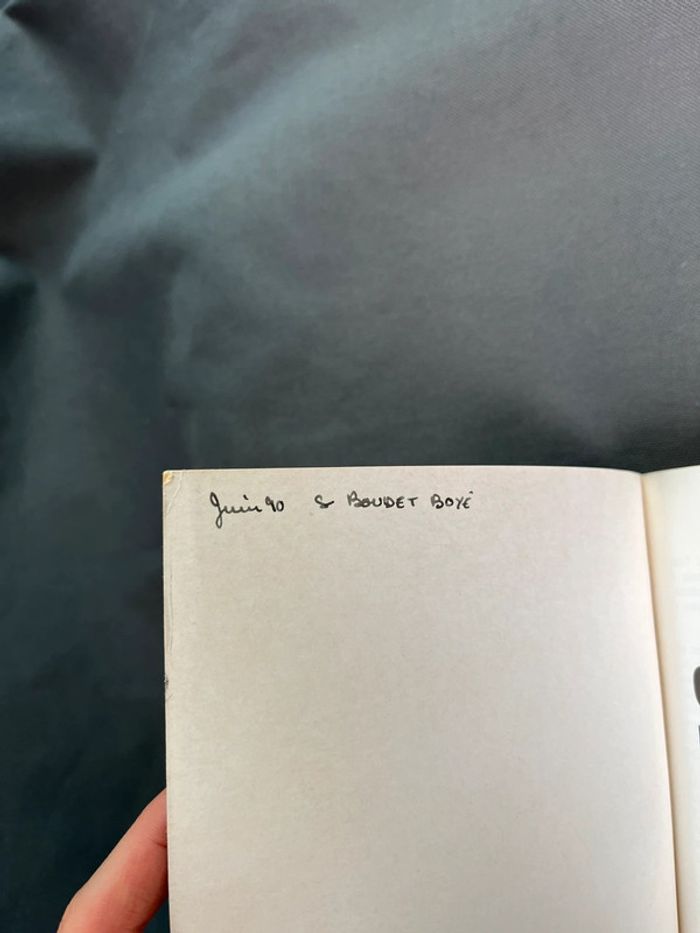 Juin 90 S BOUDET BOYÉ